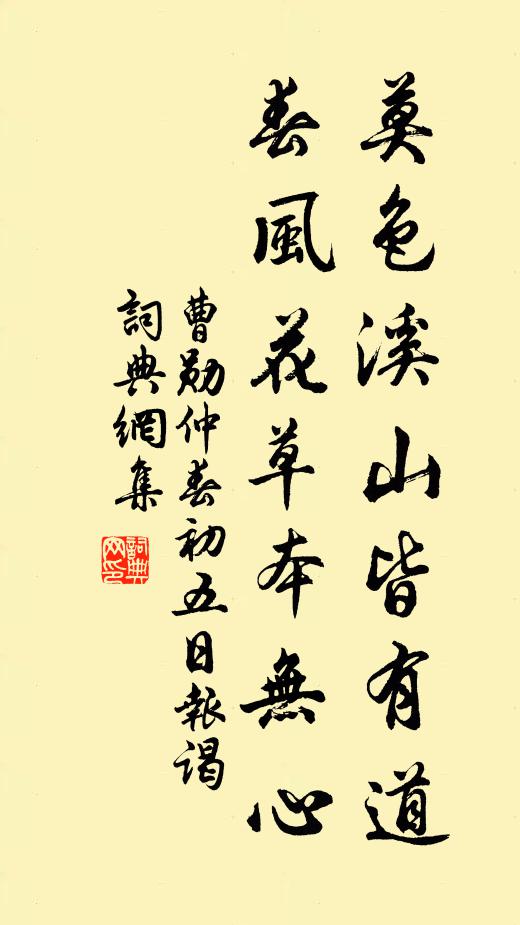 莫色溪山皆有道
春風花草本無心
曹勋仲春初五日報謁
詞典網集
詞典网印